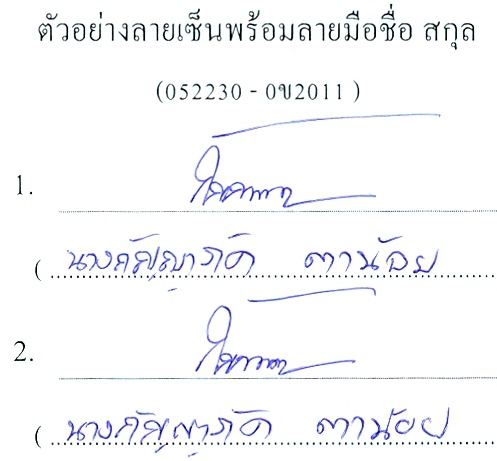 ตัวอย่างลายเซ็นพร้อมลายมือชื่อ สกุล
(052230 - 0ข2011 )
1.
( นางกัญญาภัค ตาน้อย
2.
( นางกัญญาภัค ตาน้อย